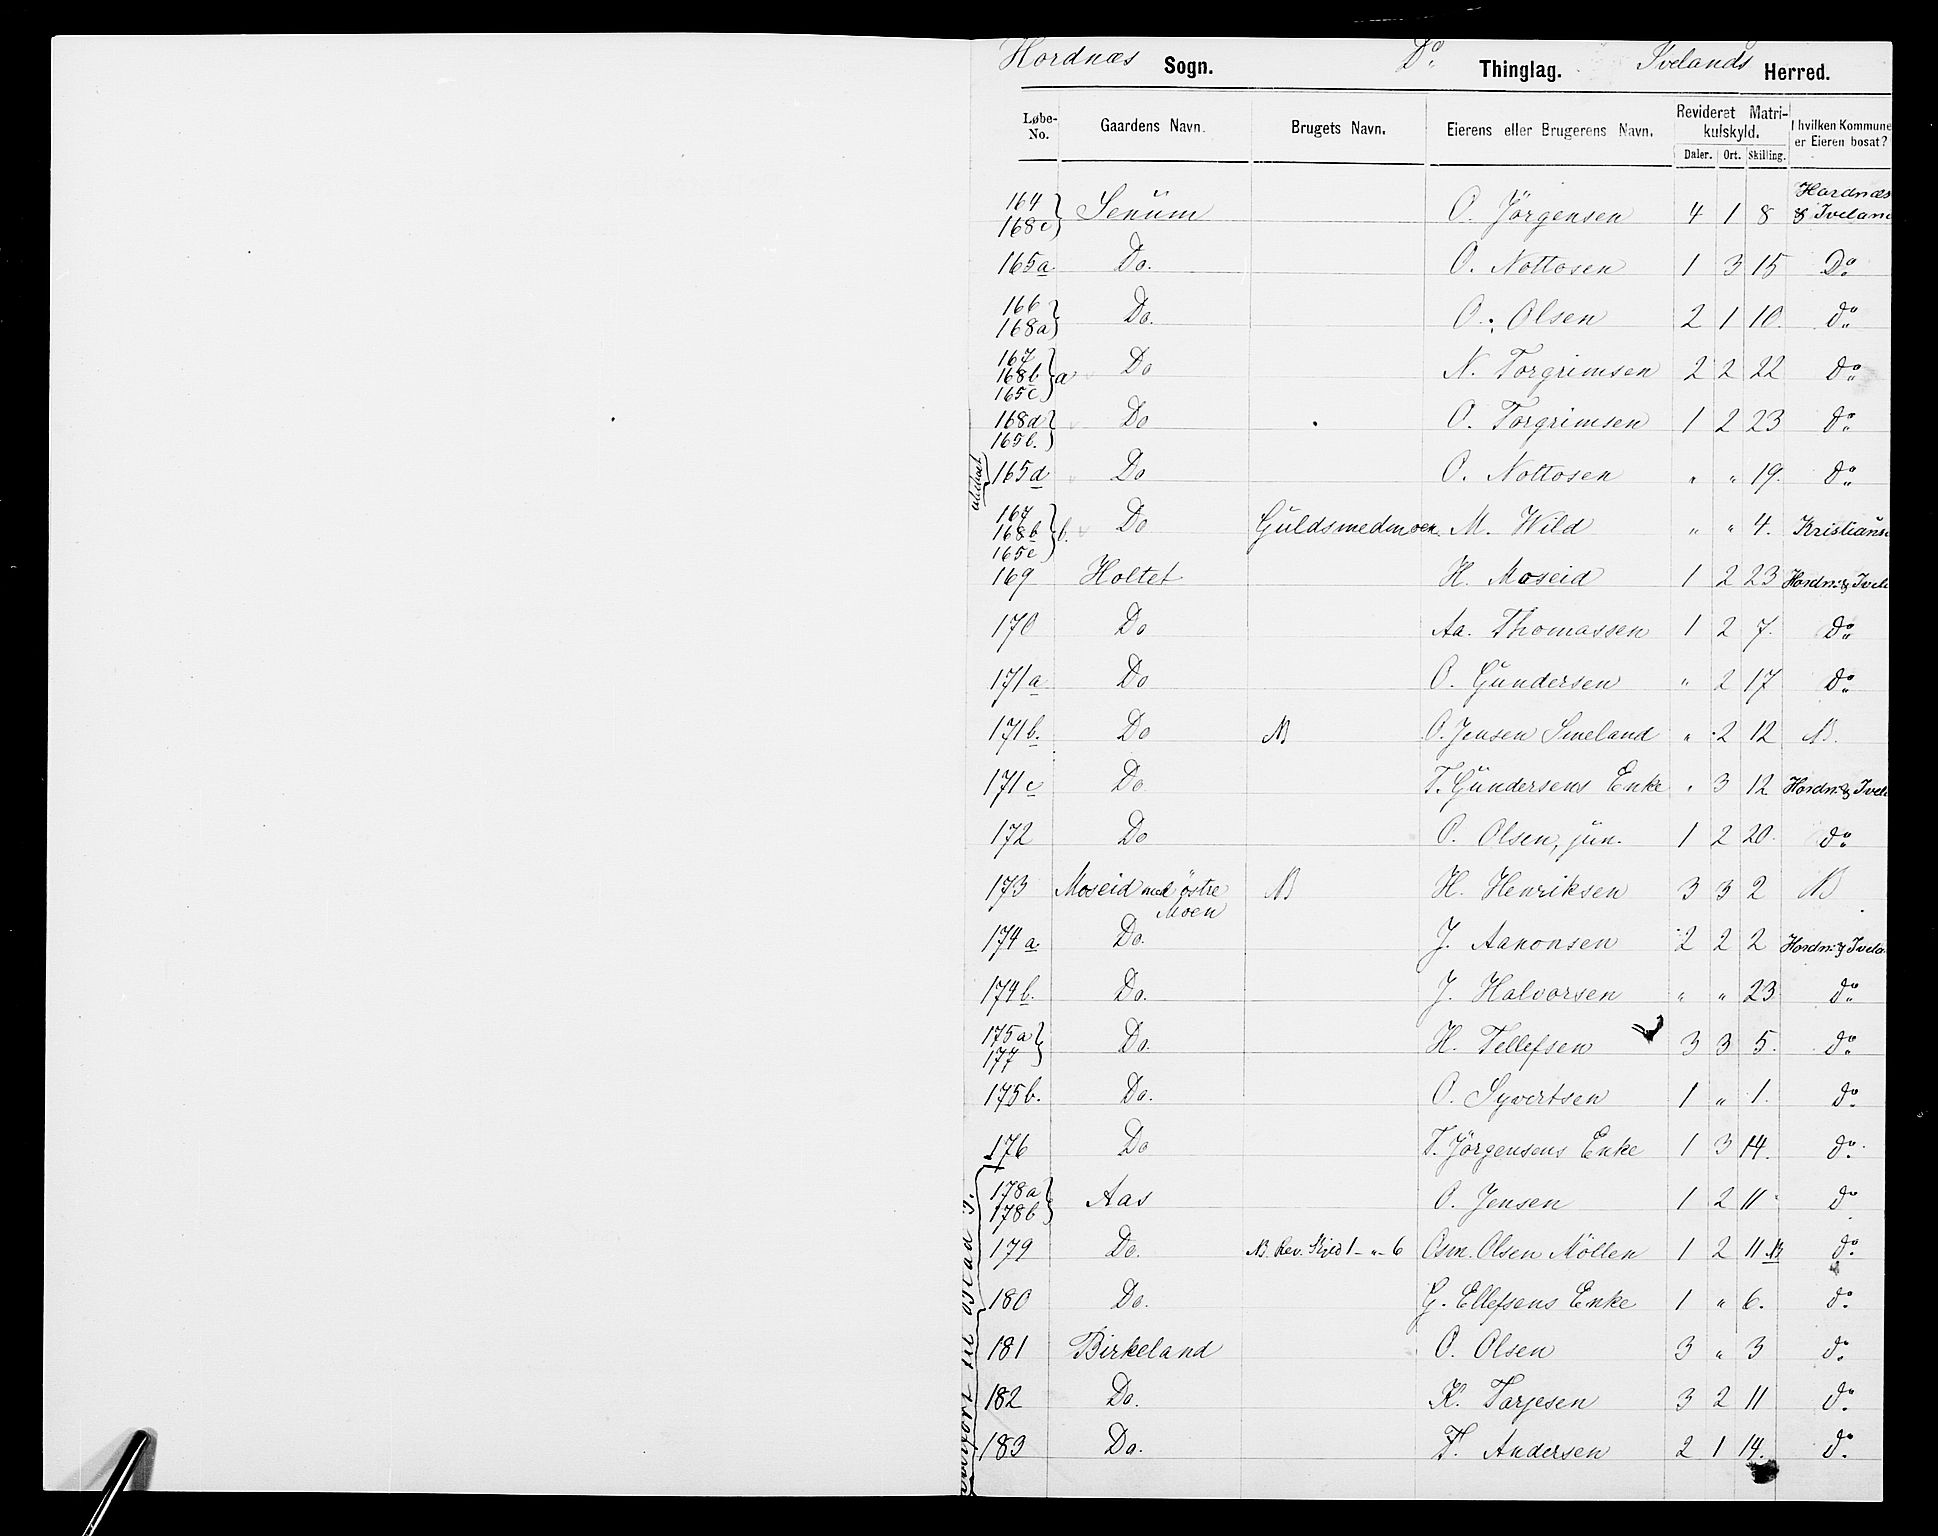 Hordnæs Sogn. Do. Thinglag. Ivelands Herred.
Løbe-No. Gaardens Navn. Brugets Navn. Eierens eller Brugerens Navn. Revideret Matrikulskyld. I hvilken Kommune er Eieren bosat?
Daler. Ort. Skilling.
164 168c} Senum O. Jörgensen 4 1 8 Hordnæs & Iveland
165a Do. O. Nottosen 1 3 15 Do.
166 168a} Do. O. Olsen 2 1 10. do.
167 168b 165c} a Do N. Torgrimsen 2 2 22 do.
168d 165b.} Do O. Torgrimsen 1 2 23 do.
165d Do O. Nottosen " " 19. do.
167 168b 165c} b. Do Guldsmedmoen. M. Wild " " 4. Kristians
169 Holtet H. Moseid 1 2 23 Hordn: & Ivel
170 Do Aa. Thomassen 1 2 7. do.
171a Do O. Gundersen " 2 17 do.
171b. Do NB O. Jensen Smeland " 2 12 NB.
171c Do T. Gundersens Enke " 3 12 Hordn: & Ivel
172 Do O. Olsen, jun. 1 2 20. do.
173 Moseid med östre Moen NB H. Henriksen 3 3 2 NB
174a. Do. J. Aanonsen 2 2 2 Hordn: & Ivela
174b. Do. J. Halvorsen " " 23 do.
175a 177} Do. H. Tellefsen 3 3 5. do.
175b. Do. O. Syvertsen 1 " 1. do.
176 Do T. Jörgensens Enke 1 3 14. do.
178a 178b} Aas O. Jensen 1 2 11 do
179 Do. NB. Rev. Skyld 1 - " - 6 Osm. Olsen Möllen 1 2 11 NB do.
180 Do. G. Ellefsens Enke 1 " 6. do.
181 Birkeland O. Olsen 3 " 3 do.
182 Do. K. Tarjesen 3 2 11 do.
183 Do. T. Andersen 2 1 14. do.